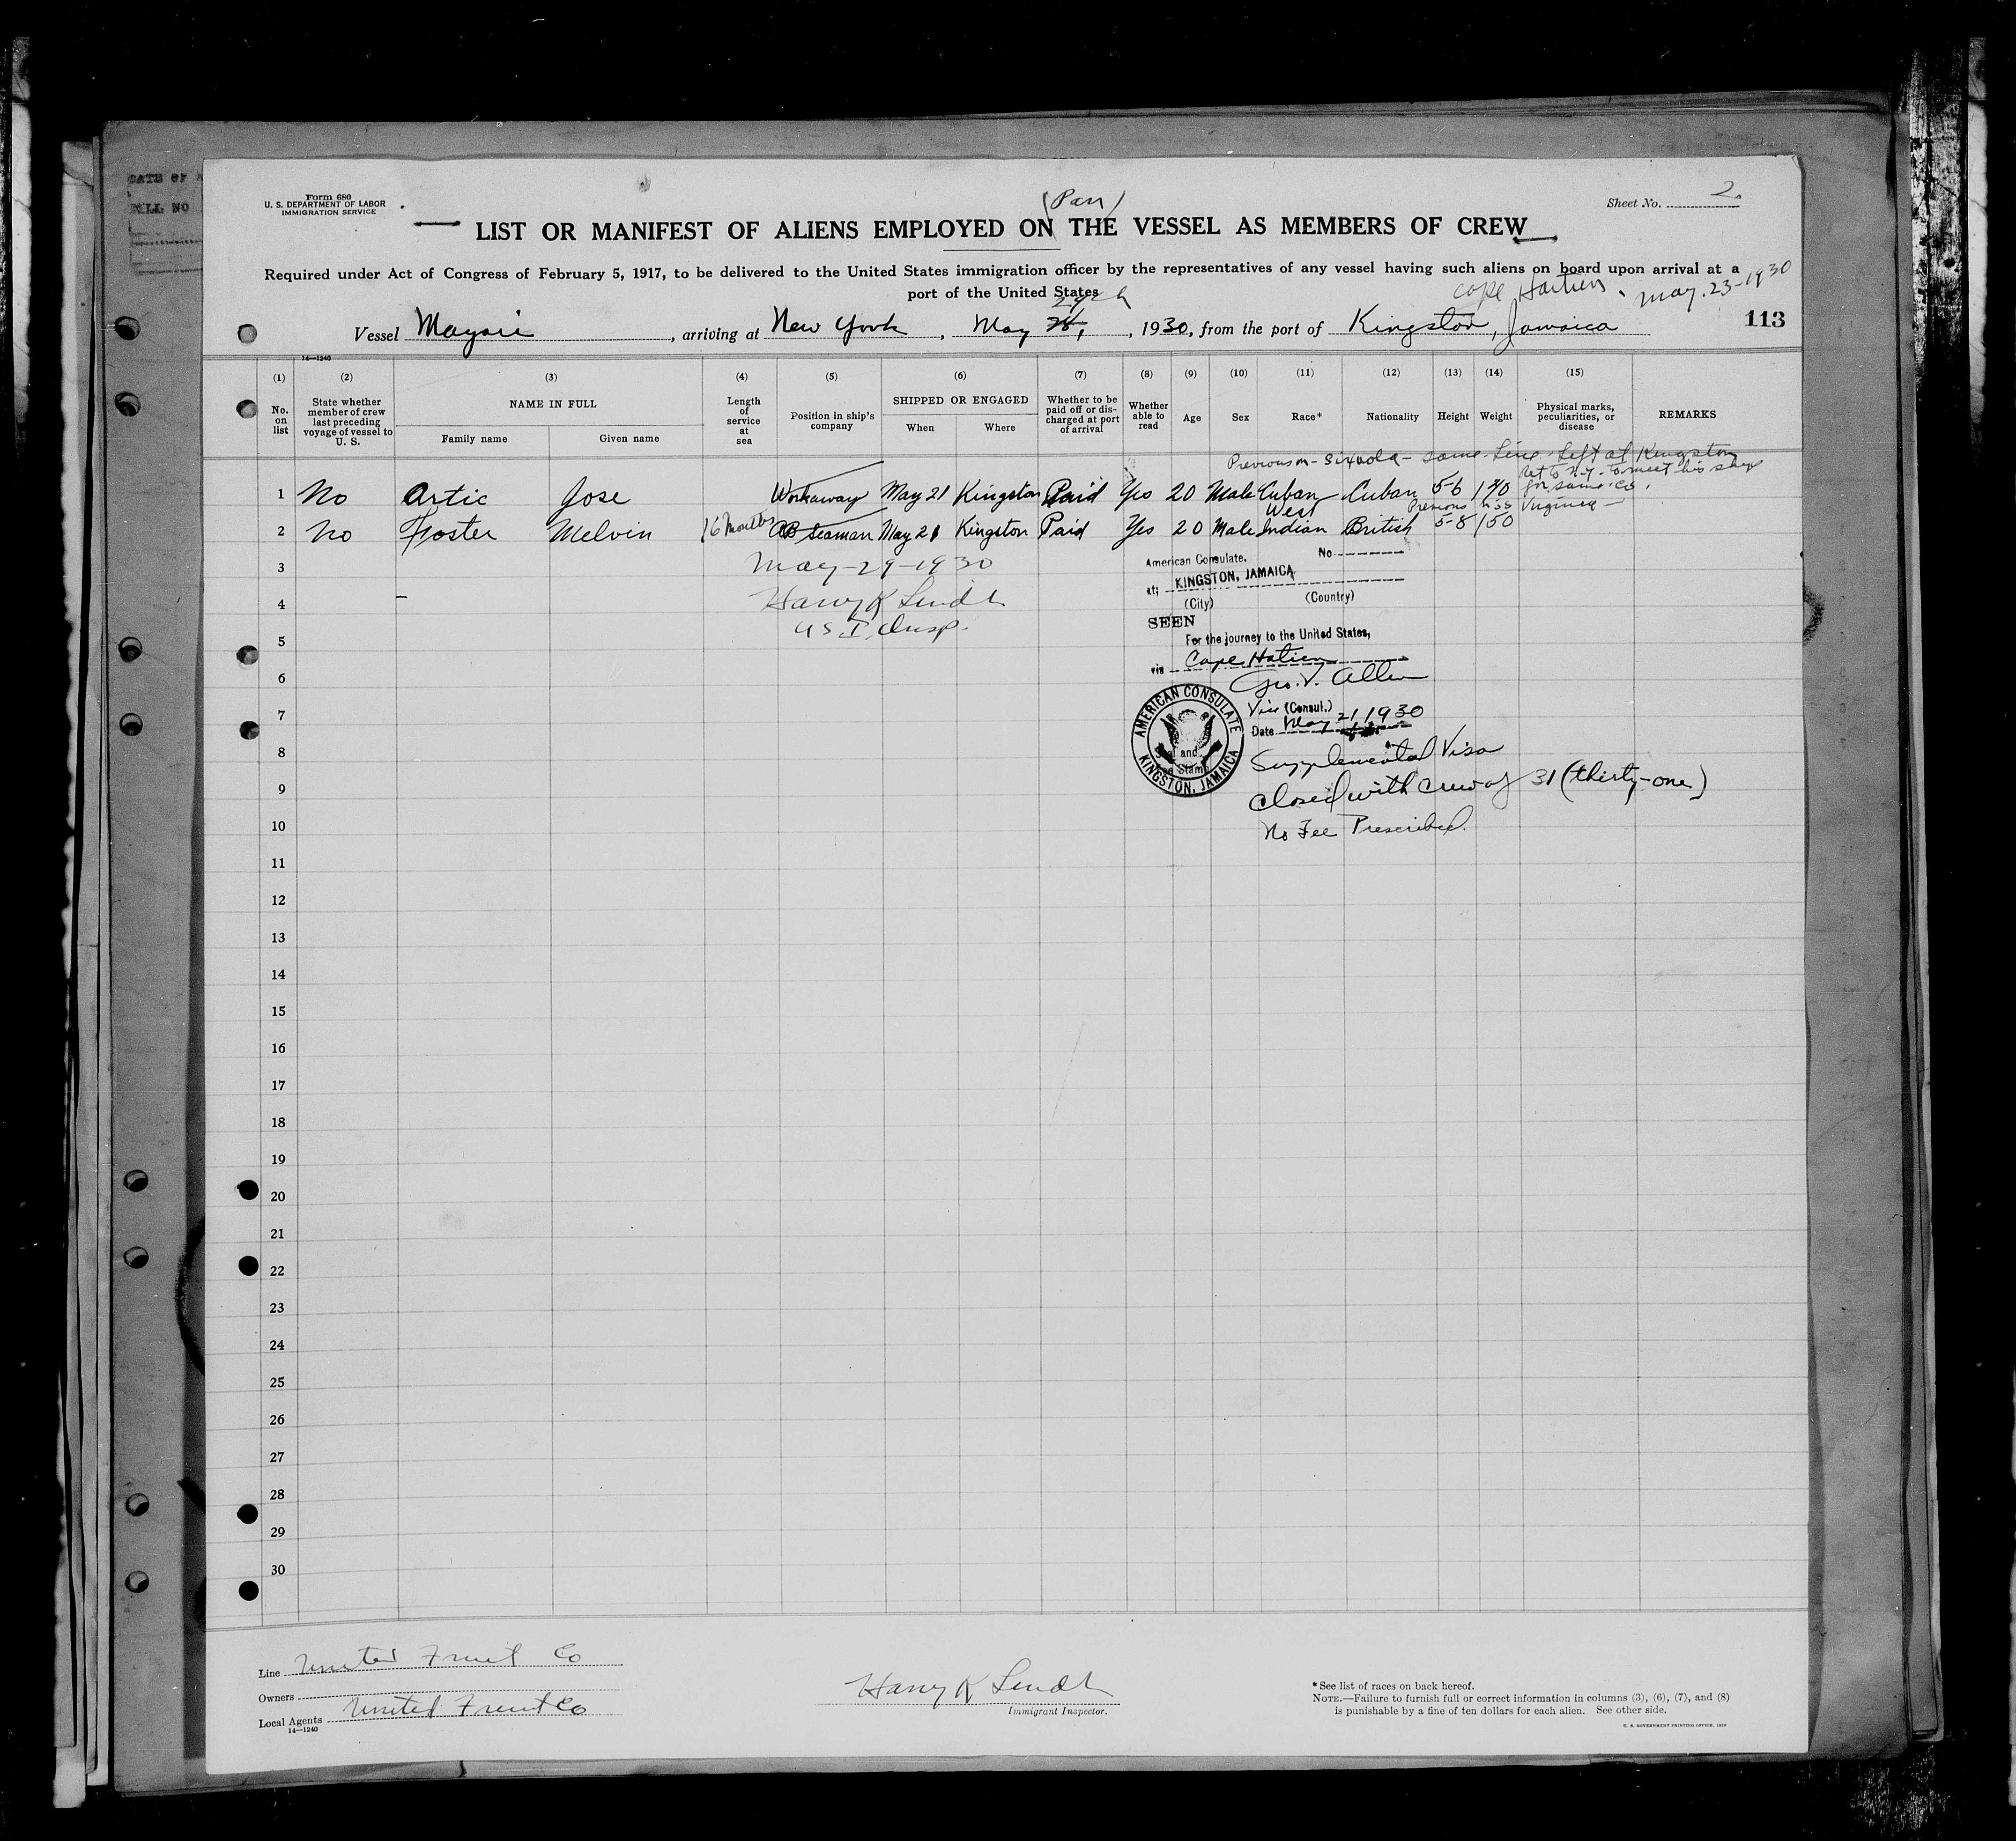 DATE OF A
ROLL NO
Form 680
U. S. DEPARTMENT OF LABOR
IMMIGRATION SERVICE
(Pan)
Sheet No. 2
LIST OR MANIFEST OF ALIENS EMPLOYED ON THE VESSEL AS MEMBERS OF CREW
Required under Act of Congress of February 5, 1917, to be delivered to the United States immigration officer by the representatives of any vessel having such aliens on board upon arrival at a
port of the United States
Cape Haitien, May. 23-1930
29th
Vessel Mayari, arriving at New York, May 28, 1930, from the port of Kingston, Jamaica
113
14—1240
(1) (2) (3) (4) (5) (6) (7) (8) (9) (10) (11) (12) (13) (14) (15)
No. on list
State whether member of crew last preceding voyage of vessel to U. S.
NAME IN FULL
Family name
Given name
Length of service at sea
Position in ship's company
SHIPPED OR ENGAGED
When
Where
Whether to be paid off or discharged at port of arrival
Whether able to read
Age
Sex
Race*
Nationality
Height
Weight
Physical marks, peculiarities, or disease
REMARKS
Previous on - Sixaola - same Line - Left at Kingston
Ret to N.Y. to meet his ship
for same Co.
1 No Artic Jose Workaway May 21 Kingston Paid Yes 20 Male Cuban Cuban 5-6 140
Previous S.S. Virginia
2 No Foster Melvin 16 Months AB Seaman May 21 Kingston Paid Yes 20 Male West Indian British 5-8 150
3 May-29-1930
4 Harry K Lindh
5 U S I. Insp.
American Consulate. No
at; KINGSTON, JAMAICA
(City) (Country)
SEEN
For the journey to the United States,
via Cape Hatien
Geo. V. Allen
Vice (Consul.)
Date May 21, 1930
AMERICAN CONSULATE
KINGSTON, JAMAICA
and
Stamp
Supplemental Visa
Closed with crew of 31 (thirty-one)
No Fee Prescribed.
6
7
8
9
10
11
12
13
14
15
16
17
18
19
20
21
22
23
24
25
26
27
28
29
30
Line United Fruit Co
Owners
Local Agents United Fruit Co
14—1240
Harry K Lindh
Immigrant Inspector.
*See list of races on back hereof.
NOTE.—Failure to furnish full or correct information in columns (3), (6), (7), and (8)
is punishable by a fine of ten dollars for each alien. See other side.
U. S. GOVERNMENT PRINTING OFFICE. 1929